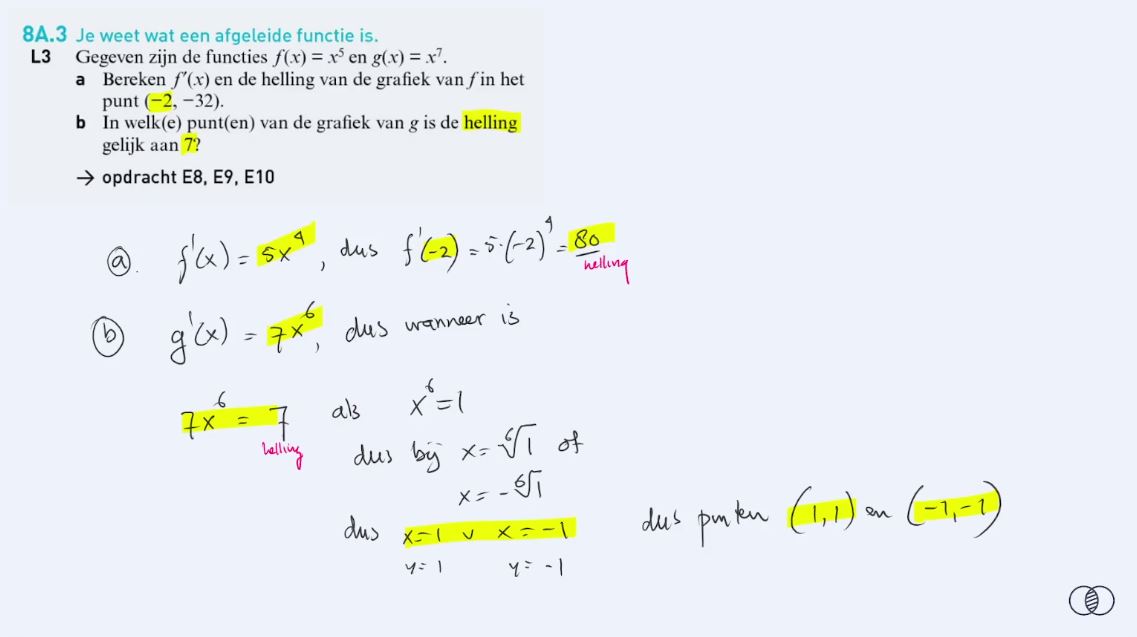 8A.3 Je weet wat een afgeleide functie is.
L3 Gegeven zijn de functies f(x) = x⁵ en g(x) = x⁷.
a Bereken f′(x) en de helling van de grafiek van f in het
punt (−2, −32).
b In welk(e) punt(en) van de grafiek van g is de helling
gelijk aan 7?
→ opdracht E8, E9, E10
a. f'(x) = 5x⁴, dus f'(-2) = 5·(-2)⁴ = 80
helling
b g'(x) = 7x⁶, dus wanneer is
7x⁶ = 7 als x⁶ = 1
helling
dus bij x = ⁶√1 of
x = -⁶√1
dus x=1 ∨ x = -1 dus punten (1,1) en (-1,-1)
y = 1 y = -1